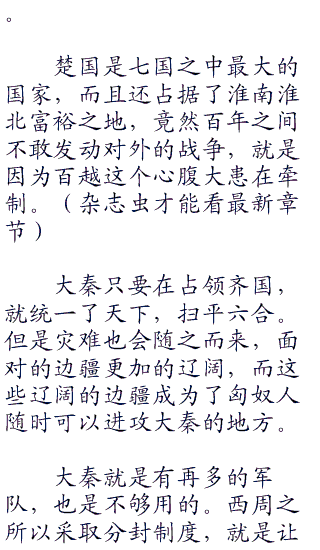 。
楚国是七国之中最大的
国家，而且还占据了淮南淮
北富裕之地，竟然百年之间
不敢发动对外的战争，就是
因为百越这个心腹大患在牵
制。（杂志虫才能看最新章
节）
大秦只要在占领齐国，
就统一了天下，扫平六合。
但是灾难也会随之而来，面
对的边疆更加的辽阔，而这
些辽阔的边疆成为了匈奴人
随时可以进攻大秦的地方。
大秦就是有再多的军
队，也是不够用的。西周之
所以采取分封制度，就是让